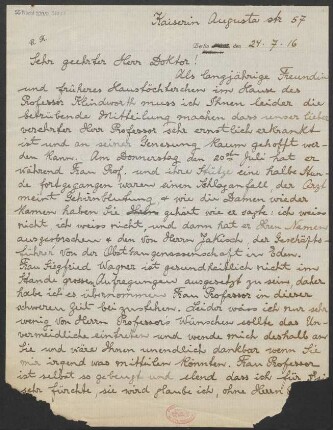 Kaiserin Augusta str 57
Berlin den 24. 7. 16
Sehr geehrter Herr Doktor!
Als langjährige Freundin
und früheres Haustöchterchen im Hause des
Professor Klindworth muss ich Ihnen leider die
betrübende Mitteilung machen dass unser lieber
verehrter Herr Professor sehr ernstlich erkrankt
ist und an seiner Genesung kaum gehofft wer-
den kann. Am Donnerstag den 20ten Juli hat er
während Frau Prof. und ihre Stütze eine halbe Stun-
de fortgegangen waren einen Schlaganfall der Arzt
meint Gehirnblutung & wie die Damen wieder
kamen haben Sie gehört wie er sagte: ich weiss
nicht, ich weiss nicht, und dann hat er Ihren Namen
ausgesprochen & den von Herrn Jackisch, der Geschäfts-
führer von der Obstbaugenossenschaft in Eden.
Frau Siegfried Wagner ist gesundheitlich nicht im
Stande grossen Aufregungen ausgesetzt zu sein, daher
habe ich es übernommen Frau Professor in dieser
schweren Zeit bei zustehen. Leider weiss ich nur sehr
wenig von Herrn Professors Wünschen sollte das Un-
vermeidliche eintreten und wende mich deshalb an
Sie und wäre Ihnen unendlich dankbar wenn Sie
mir irgend was mitteilen könnten. Frau Professor
ist selbst so gebeugt und elend dass ich für Sie
sehr fürchte, sie wird glaube ich, ohne Herrn